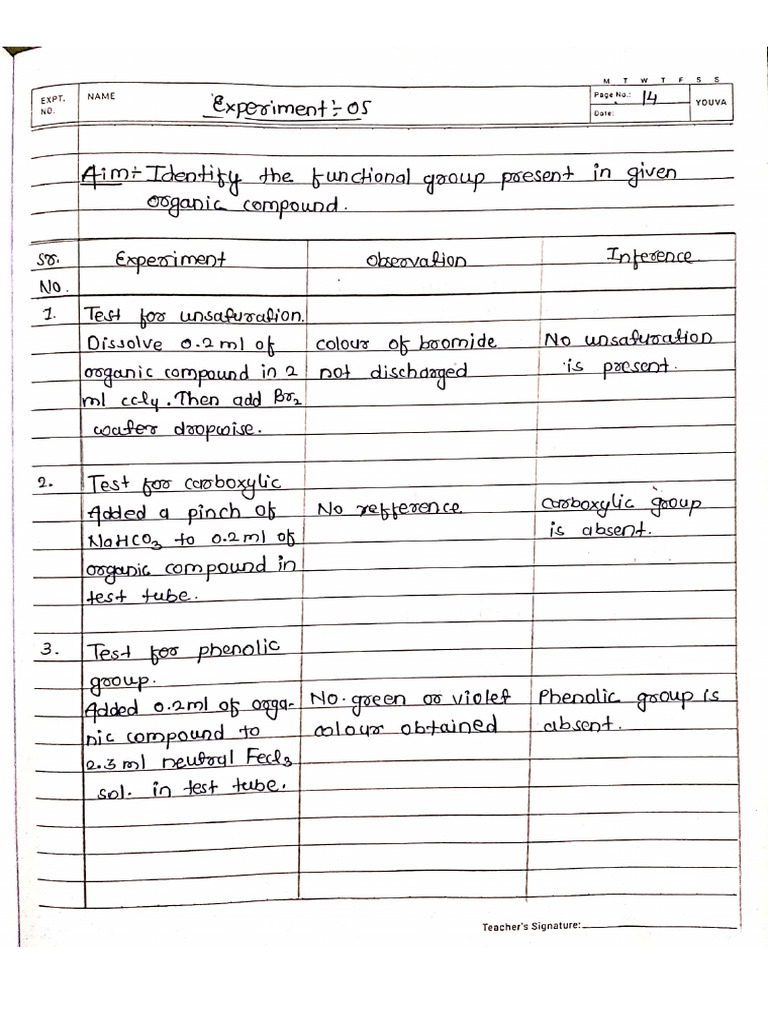 M T W T F S S
EXPT. NO.
NAME
Experiment:- 05
Page No.: 14
Date:
YOUVA
Aim:- Identify the functional group present in given
organic compound.
Sr. No.
Experiment
Observation
Inference
1.
Test for unsaturation.
Dissolve 0.2 ml of
organic compound in 2
ml ccl4. Then add Br2
water dropwise.
colour of bromide
not discharged
No unsaturation
is present.
2.
Test for carboxylic
Added a pinch of
NaHCO3 to 0.2 ml of
organic compound in
test tube.
No refference
Carboxylic group
is absent.
3.
Test for phenolic
group.
Added 0.2ml of orga-
nic compound to
2.3 ml neutral Fecl3
sol. in test tube.
No. green or violet
colour obtained
Phenolic group is
absent.
Teacher's Signature: